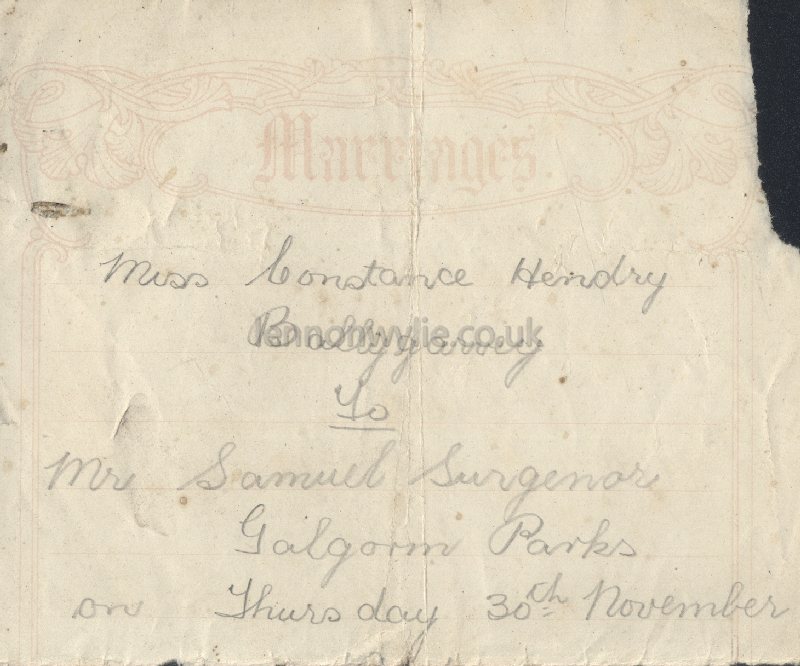 Marriages.
Miss Constance Hendry
Ballygarvey
lennonwylie.co.uk
To
Mr Samuel Surgenor
Galgorm Parks
on Thursday 30th November